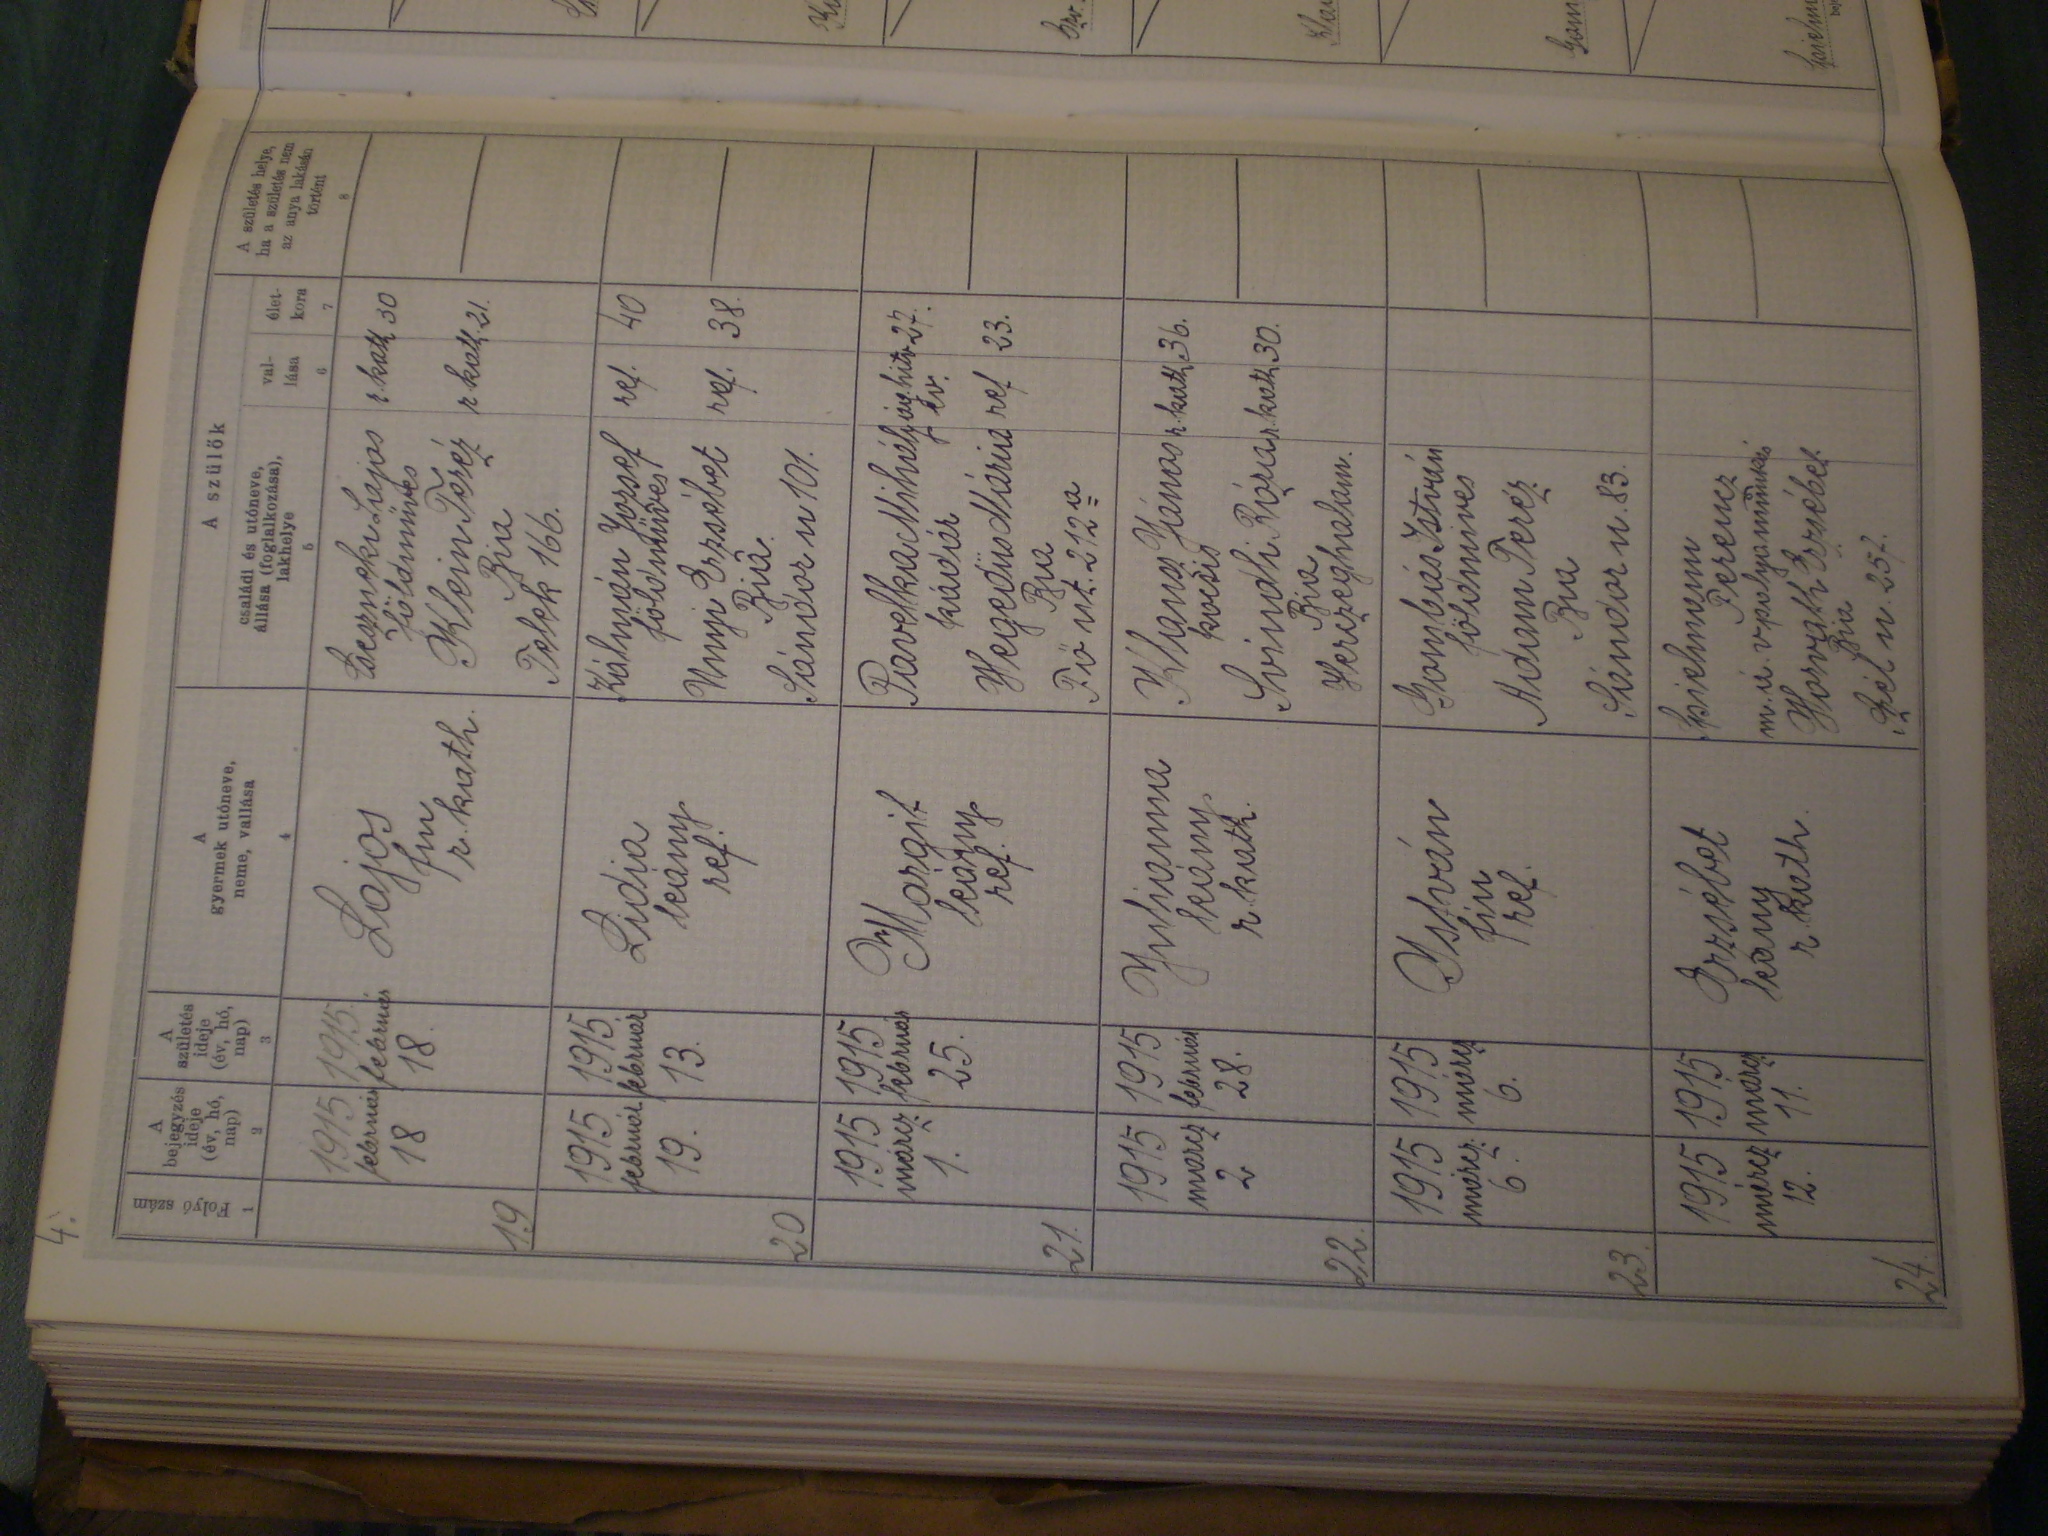 4.
Folyó szám
1
A
bejegyzés
ideje
(év, hó,
nap)
2
A
születés
ideje
(év, hó,
nap)
3
A
gyermek utóneve,
neme, vallása
4
A szülők
családi és utóneve,
állása (foglalkozása),
lakhelye
5
val-
lása
6
élet-
kora
7
A születés helye,
ha a születés nem
az anya lakásán
történt
8
19
1915
február
18
1915.
február
18.
Lajos
fiu
r. kath.
Lajos
földmüves
Klein Teréz
Bia
Telek 166.
r. kath 30
r. kath. 21.
20
1915
február
19.
1915.
február
13.
Lidia
leány
ref.
Kálmán József
földmüves
Unyi Erzsébet
Bia.
Sándor u 101.
ref. 40
ref. 38.
21.
1915
márcz
1.
1915
február
25.
Margit
leány
ref.
Pavelka Mihály
kádár
Hegedüs Mária
Bia
Fő ut. 212 a
ág. hitv
ev.
27.
ref 23.
22.
1915
márcz
2
1915
február
28.
Julianna
leány
r. kath.
János
kocsis
Bia
Herczeghalom.
r. kath 36.
r. kath 30.
23.
1915
márcz.
6.
1915
márcz
6.
István
fiu
ref.
Gombás István
földmives
Ádám Teréz
Bia
Sándor u. 83.
24.
1915
márcz
12.
1915
márcz
11.
Erzsébet
leány
r. kath.
Spielmann
Ferencz
m. á. v. pályamunkás
Horváth Erzsébet
Bia
Szél u. 257.